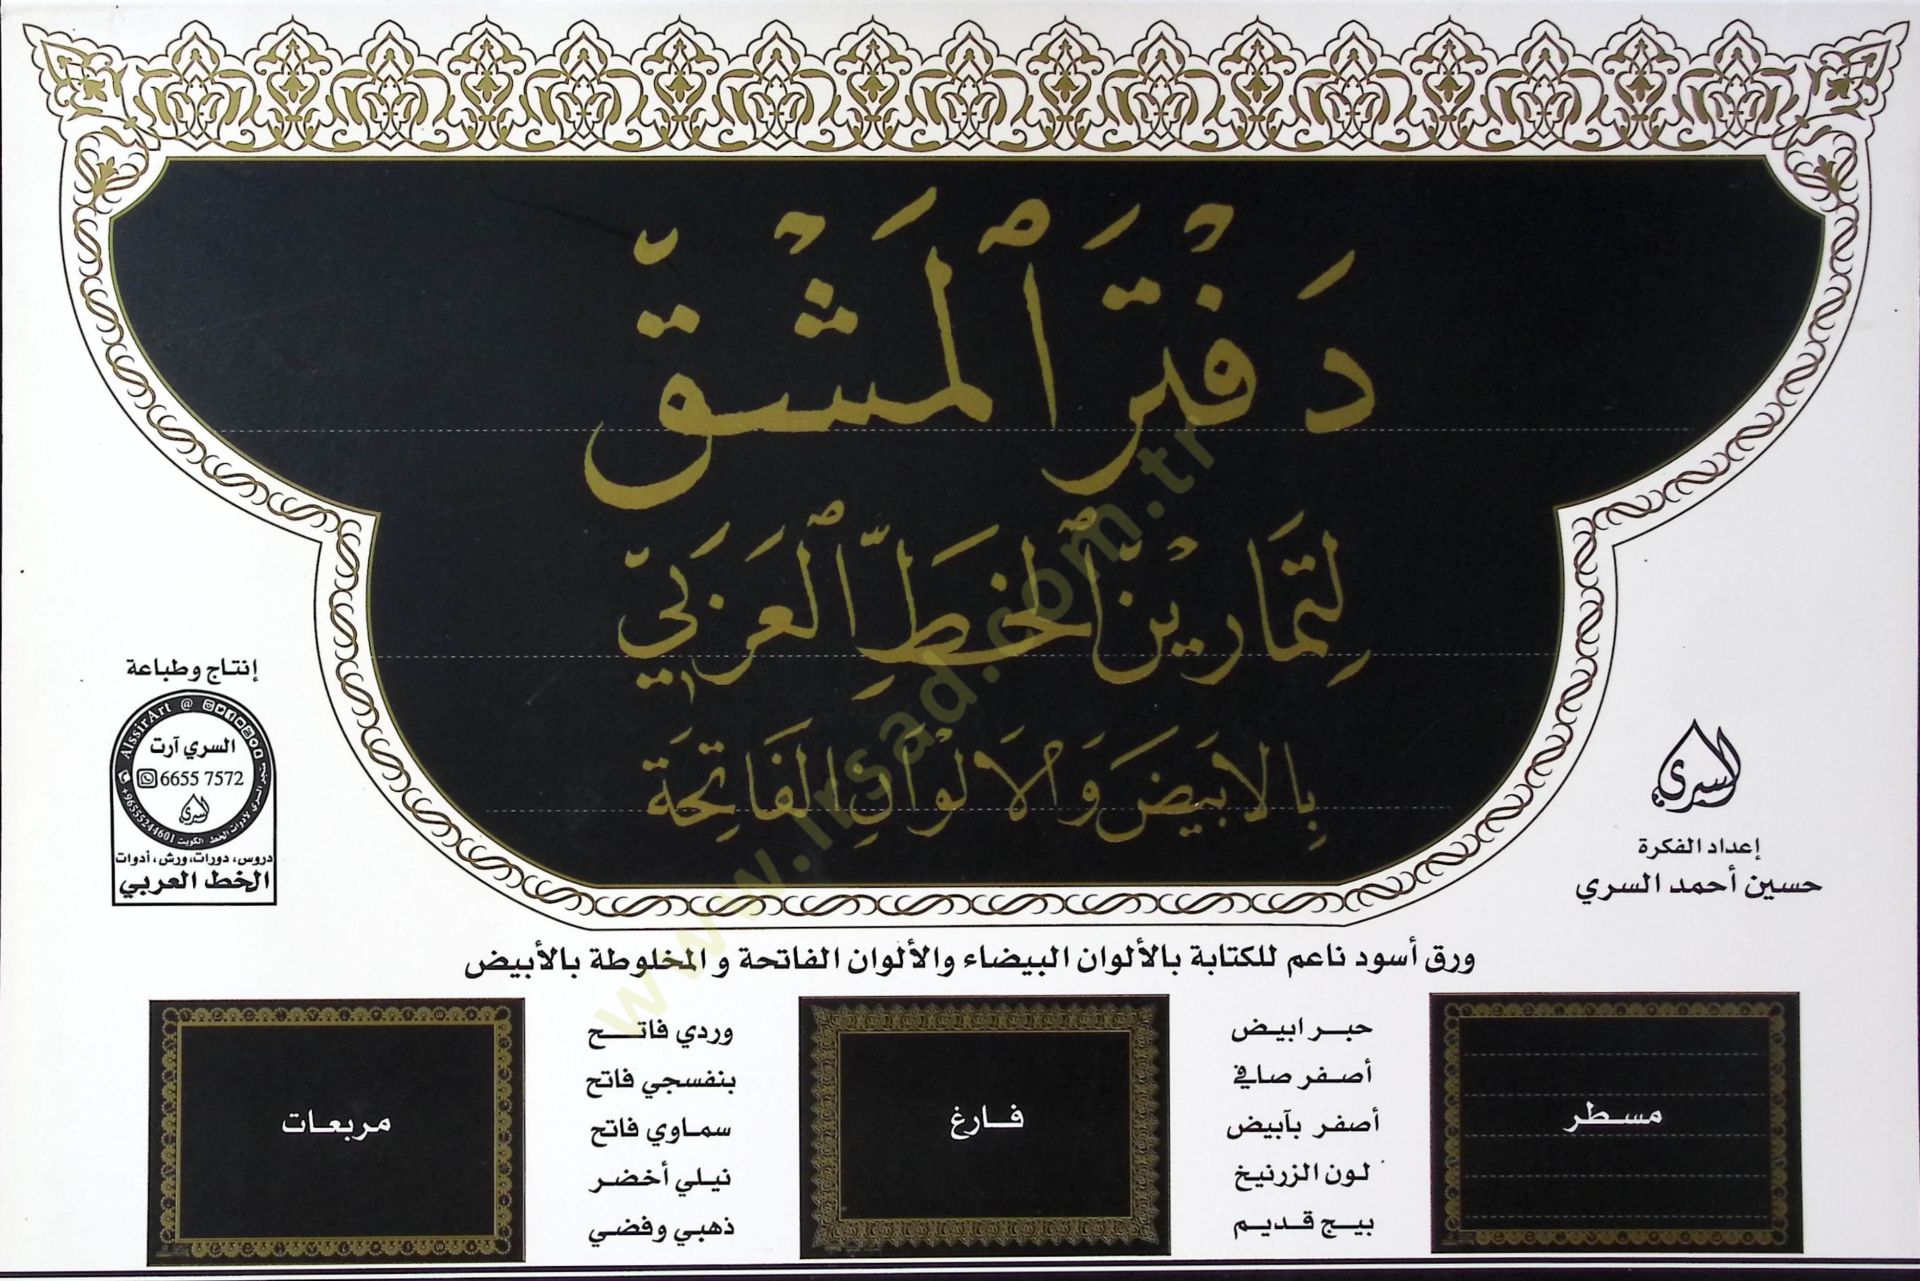 دَفْتَرُ ٱلْمَشْقِ
لِتَمَارِينِ ٱلْخَطِّ ٱلْعَرَبِيِّ
بِالأَبْيَضِ وَالأَلْوَانِ الفَاتِحَة
إنتاج وطباعة
@ AlssirArt
السري آرت
6655 7572
السري
متجر السري لأدوات الخط الكويت
+96555244601
دروس، دورات، ورش، أدوات
الخط العربي
السري
إعداد الفكرة
حسين أحمد السري
ورق أسود ناعم للكتابة بالألوان البيضاء والألوان الفاتحة و المخلوطة بالأبيض
مسطر
حبر ابيض
أصفر صافي
أصفر بآبيض
لون الزرنيخ
بيج قديم
فارغ
وردي فاتح
بنفسجي فاتح
سماوي فاتح
نيلي أخضر
ذهبي وفضي
مربعات
www.irsad.com.tr